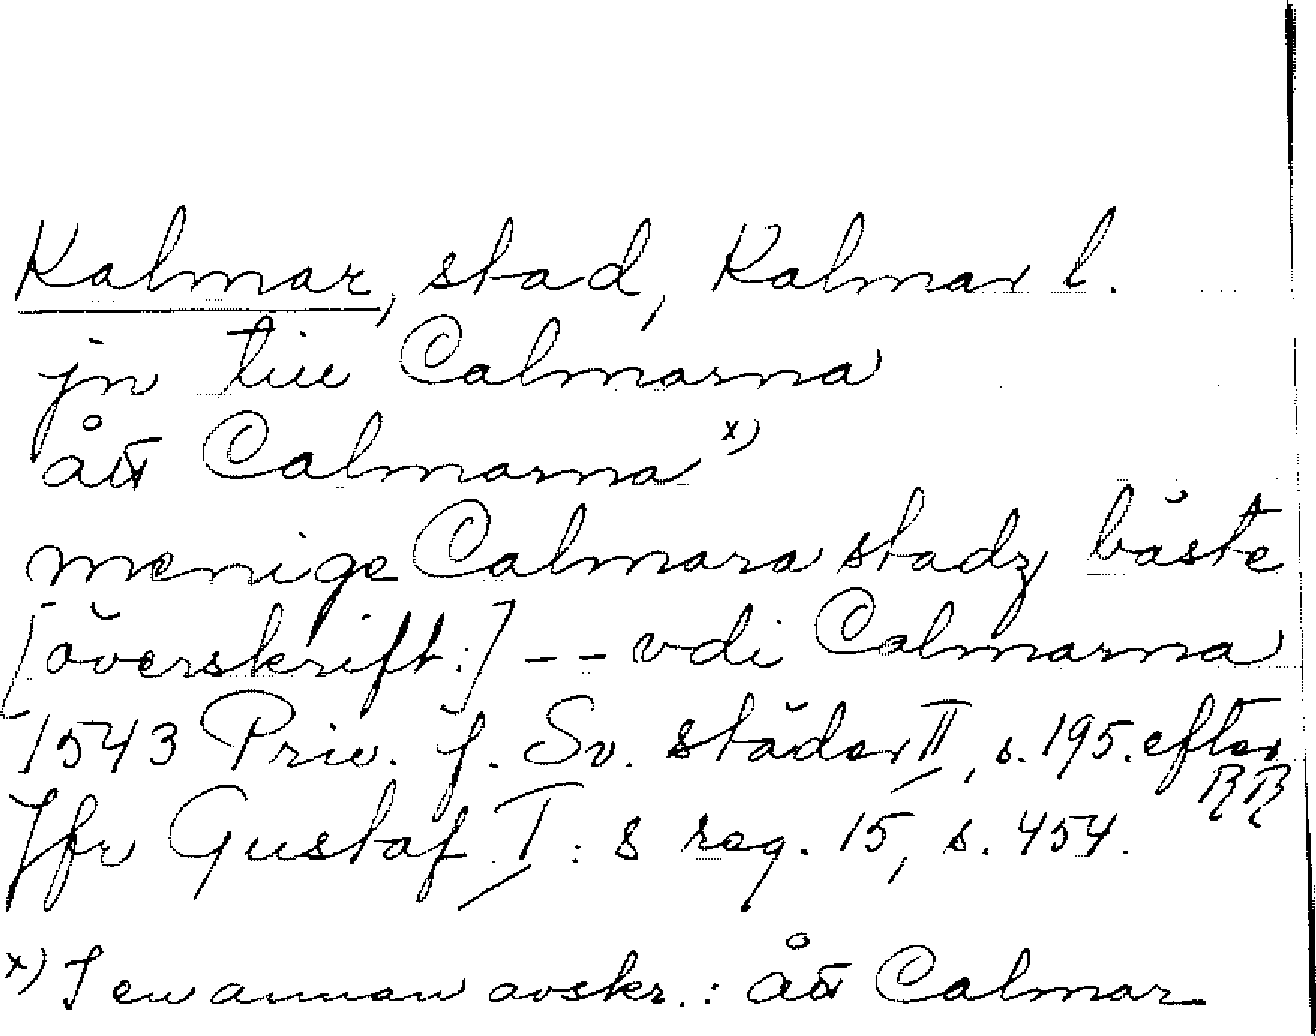 Kalmar, stad, Kalmar l.
jn till Calmarna
ått Calmarna x)
menige Calmara stadz bäste
[överskrift:] -- vdi Calmarna
1543 Priv. f. Sv. städer II, s. 195. efter RR
Jfr Gustaf I:s reg. 15, s. 454.
x) I en annan avskr.: ått Calmar